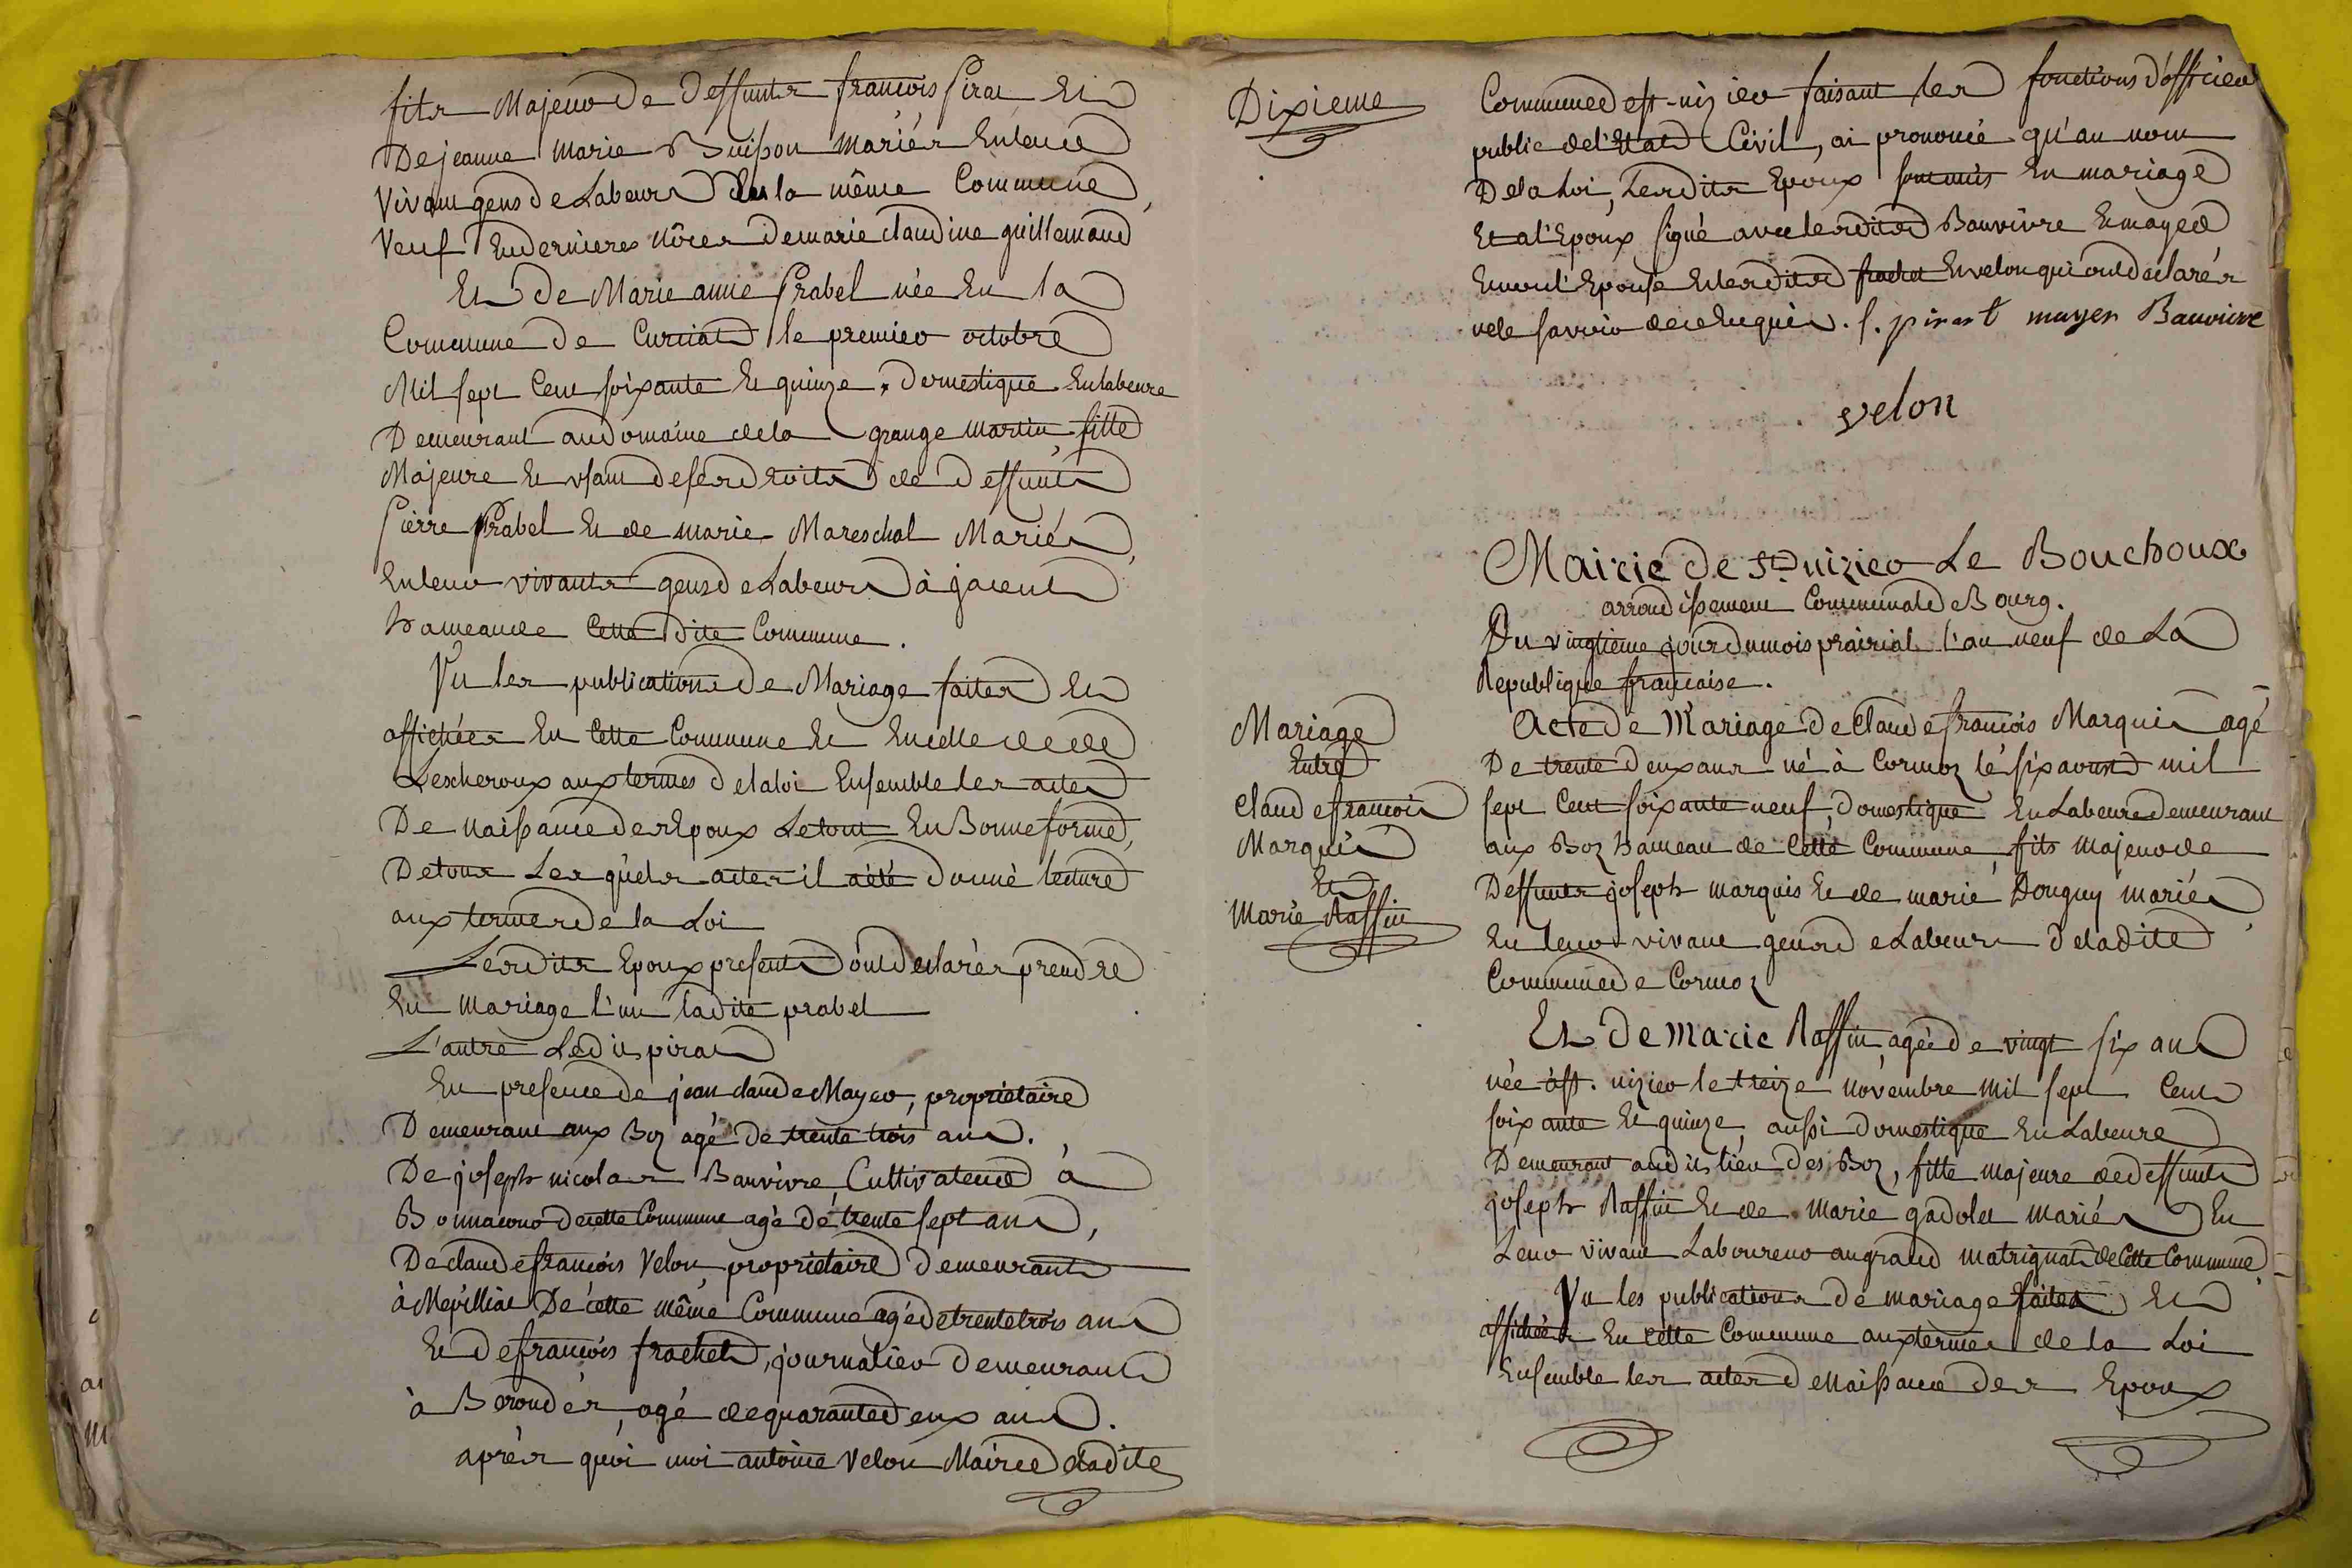 fils Majeur De Deffunts françois Pirat Et
De jeanne Marie Buisson mariés Enleur
Vivant gens de Labeur de la même Commune,
Veuf En dernieres nôces de marie claudine guillemaud
Et de Marie anne Prabel née En la
Commune de Curciat le premier octobre
Mil sept Cent soixante Et quinze, Domestique En labeure
Demeurant au Domaine de la grange Martin, fille
Majeure Et usant de ses droits de Deffunts
Pierre Prabel Et de marie Mareschal Mariés,
En leur vivants gens de Labeur à
hameau de Cette dite Commune.
Vu les publications de Mariage faites Et
affichées En Cette Commune Et En celle de
Lescheroux aux termes de la loi Ensemble les actes
De naissance des Epoux Le tout En Bonne forme,
De tous Lesquels actes il a été Donné lecture
aux termes de la Loi
Lesdits Epoux presents ont declarés prendre
En mariage l'un ladite prabel
L'autre Ledit pirat
En presence de jean claude Mayer, propriétaire
Demeurant aux Boz agé De trente trois ans.
De joseph nicolas Bauvivre, Cultivateur à
Bonnacour de cette Commune agé de trente sept ans,
De claude françois Velon, propriétaire Demeurant
à Mepilliat De cette même Commune agé de trente trois ans
Et de françois frachet, journalier Demeurant
à Berondés, agé de quarante deux ans.
après quoi moi antoine Velon Maire de ladite
Dixieme
Commune de st-nizier faisant les fonctions d'officier
public de l'Etat Civil, ai prononcé qu'au nom
De la Loi, Lesdits Epoux sont unis En mariage
Et a l'Epoux signé avec lesdits Bauvivre Et mayer
Et non l'Epouse Et lesdits frachet Et velon qui ont declarés
ne le savoir de ce Enquis. f. pirat mayer Bauvivre
velon
Mairie De St nizier Le Bouchoux
arrondissement Communal de Bourg.
Du vingtieme jour du mois prairial l'an neuf de La
Republique française.
Mariage
Entre
Claude françois
Marquis
Et
Marie Raffin
Acte De Mariage De Claude françois Marquis agé
De trente deux ans né à Cormoz le six aoust mil
sept Cent soixante neuf, Domestique En Labeure demeurant
aux Boz hameau de Cette Commune, fils majeur de
Deffunts joseph marquis Et de marie Donguy mariés
En leur vivant gens de Labeur de ladite
Commune de Cormoz
Et De Marie Raffin, agée de vingt six ans
née à st. nizier le treize novembre mil sept Cent
soixante Et quinze, aussi domestique En Labeure
Demeurant audit lieu des Boz, fille majeure de deffunts
joseph Raffin Et de Marie gadolet mariés En
Leur vivant Laboureur au grand matrignat de Cette Commune,
Vu les publications de mariage faites Et
affichées En Cette Commune aux termes de la Loi
Ensemble les actes de Naissance des Epoux